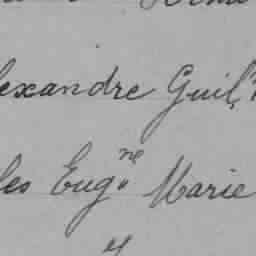 exandre Guil
les Eug.ne Marie